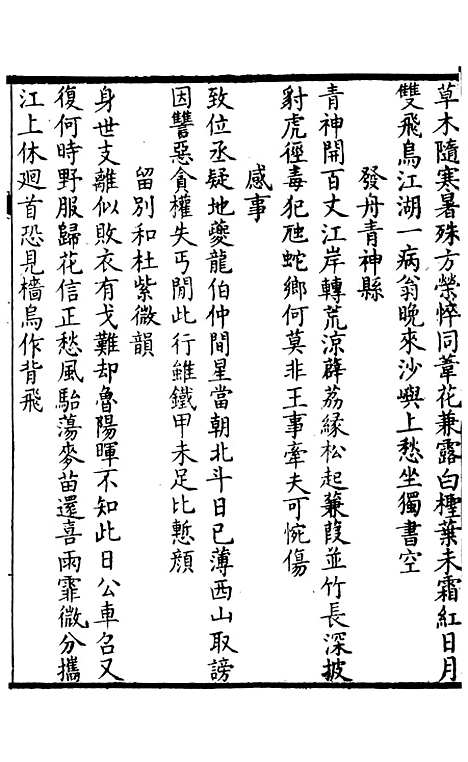 草木隨寒暑殊方榮悴同葦花兼露白檉葉未霜紅日月
雙飛鳥江湖一病翁晚來沙嶼上愁坐獨書空
發舟青神縣
青神開百丈江岸轉荒涼薜荔緣松起蒹葭並竹長深披
豺虎徑毒犯虺蛇鄉何莫非王事牽夫可惋傷
感事
致位丞疑地夔龍伯仲間星當朝北斗日已薄西山取謗
因讐惡貪權失丐閒此行雖鐵甲未足比慙顏
留別和杜紫微韻
身世支離似敗衣有戈難却魯陽暉不知此日公車召又
復何時野服歸花信正愁風駘蕩麥苗還喜雨霏微分攜
江上休迴首恐見檣烏作背飛